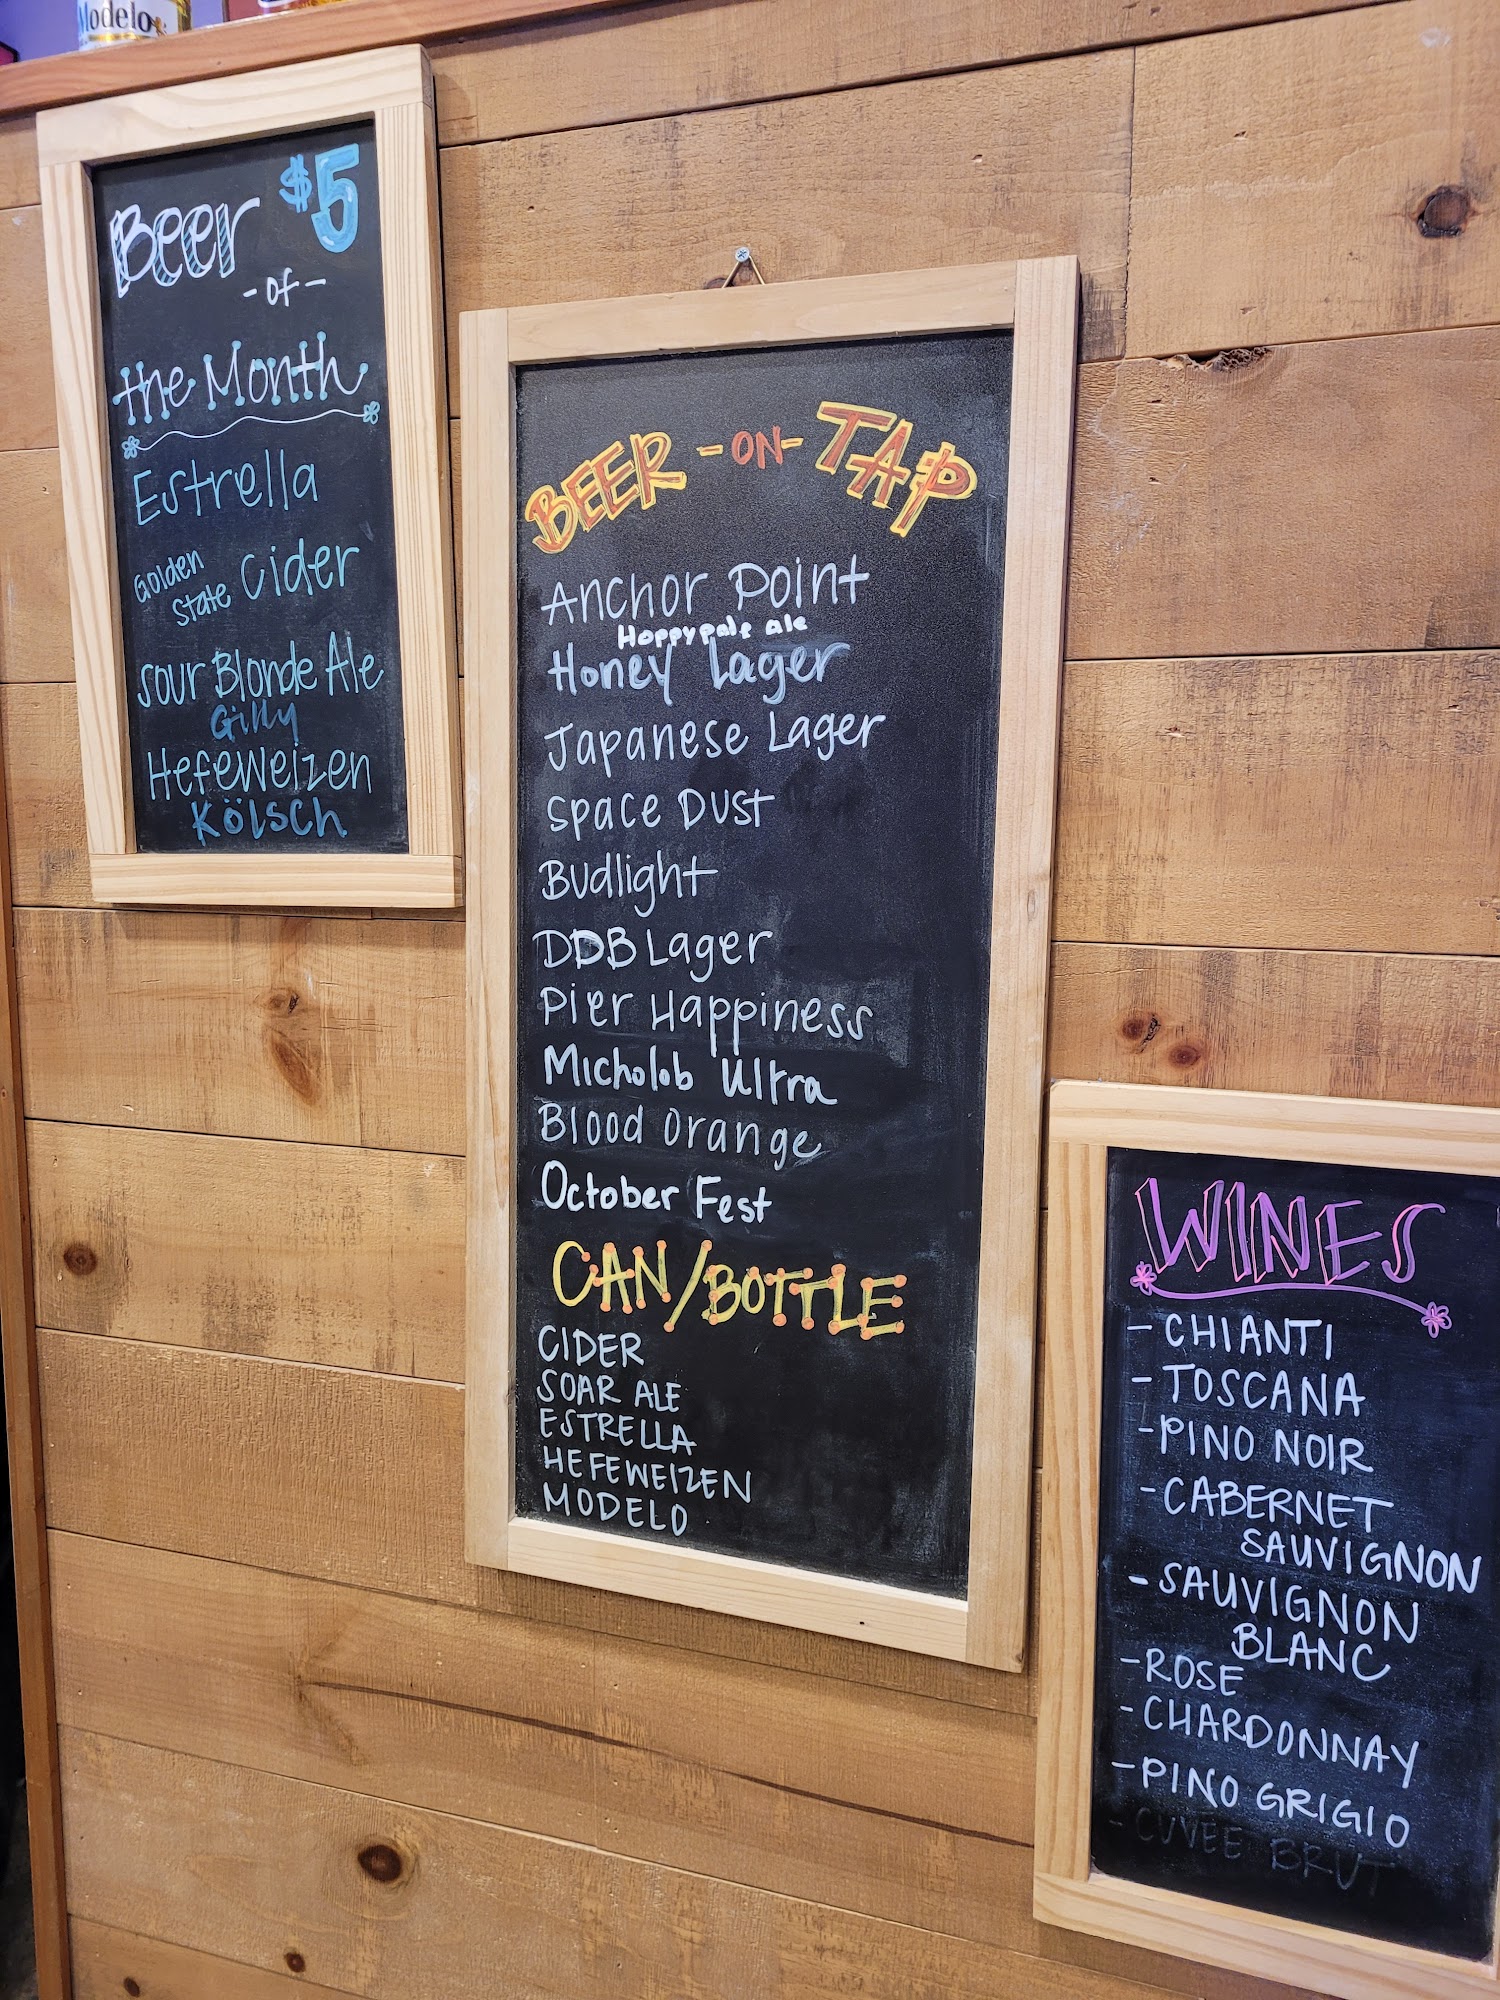 Modelo
Beer $5
-of-
the Month
Estrella
Golden State Cider
Sour Blonde Ale
Gilly
Hefeweizen
Kölsch
BEER -ON- TAP
Anchor Point
Hoppy pale ale
Honey Lager
Japanese Lager
Space Dust
Budlight
DDB Lager
Pier Happiness
Micholob Ultra
Blood Orange
October Fest
CAN/BOTTLE
CIDER
SOAR ALE
ESTRELLA
HEFEWEIZEN
MODELO
WINES
- CHIANTI
- TOSCANA
- PINO NOIR
- CABERNET
SAUVIGNON
- SAUVIGNON
BLANC
- ROSE
- CHARDONNAY
- PINO GRIGIO
- CUVEE BRUT